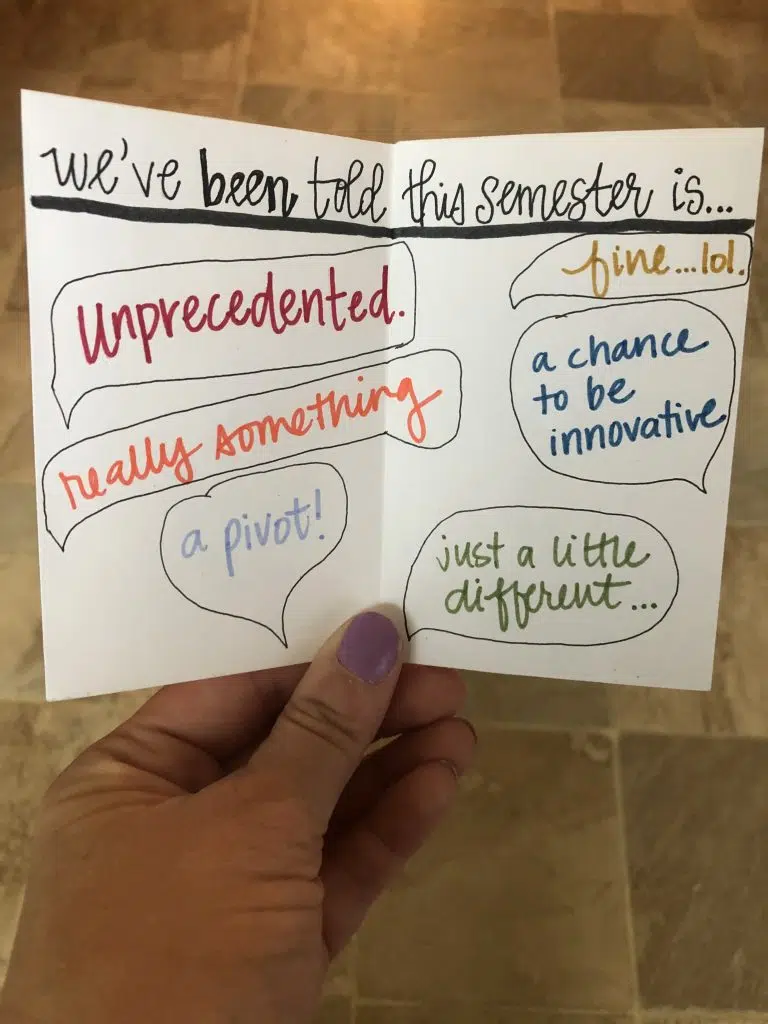 we've been told this semester is...
unprecedented.
really something
a pivot!
fine...lol.
a chance
to be
innovative
just a little
different...